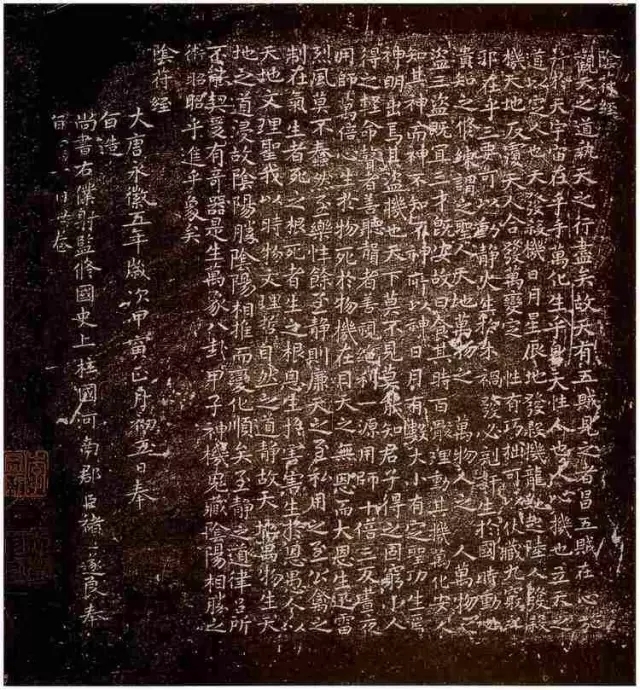 陰符經
觀天之道執天之行盡矣故天有五賊見之者昌五賊在心施
天宇宙在乎手萬化生乎身天性人也人心機也立天之
道以定人也天發殺機日月星辰地發殺機龍蛇起陸人發殺
機天地反覆天人合發萬變定 性有巧拙可以伏藏九竅之
邪在乎三要可以動靜火生於木禍發必剋奸生於國時動必
潰知之修練謂之聖人天地萬物之 萬物人之 人萬物之
盜三盜既宜三才既安故曰食其時百骸理動其機萬化安人
知其神而神不知不神所以神日月有數大小有定聖功生焉
神明出焉其盜機也天下莫不見莫能知君子得之固窮小人
得之輕命瞽者善聽聾者善視絕利 源用師十倍三反晝夜
用師萬倍心生於物死於物機在目天之無恩而大恩生迅雷
烈風莫不蠢然至樂性餘至靜則廉天之至私用之至公禽之
制在氣生者死之根死者生之根恩生於害害生於恩愚人以
天地文理聖我以時物文理哲自然之道靜故天地萬物生天
地之道浸故陰陽勝陰陽相推而變化順矣至靜之道律呂所
不能契爰有奇器是生萬象八卦甲子神機鬼藏陰陽相勝之
術昭昭乎進乎象矣
陰符經
大唐永徽五年歲次甲寅正月初五日奉
旨造
尚書右僕射監修國史上柱國河南郡臣褚遂良奉
旨